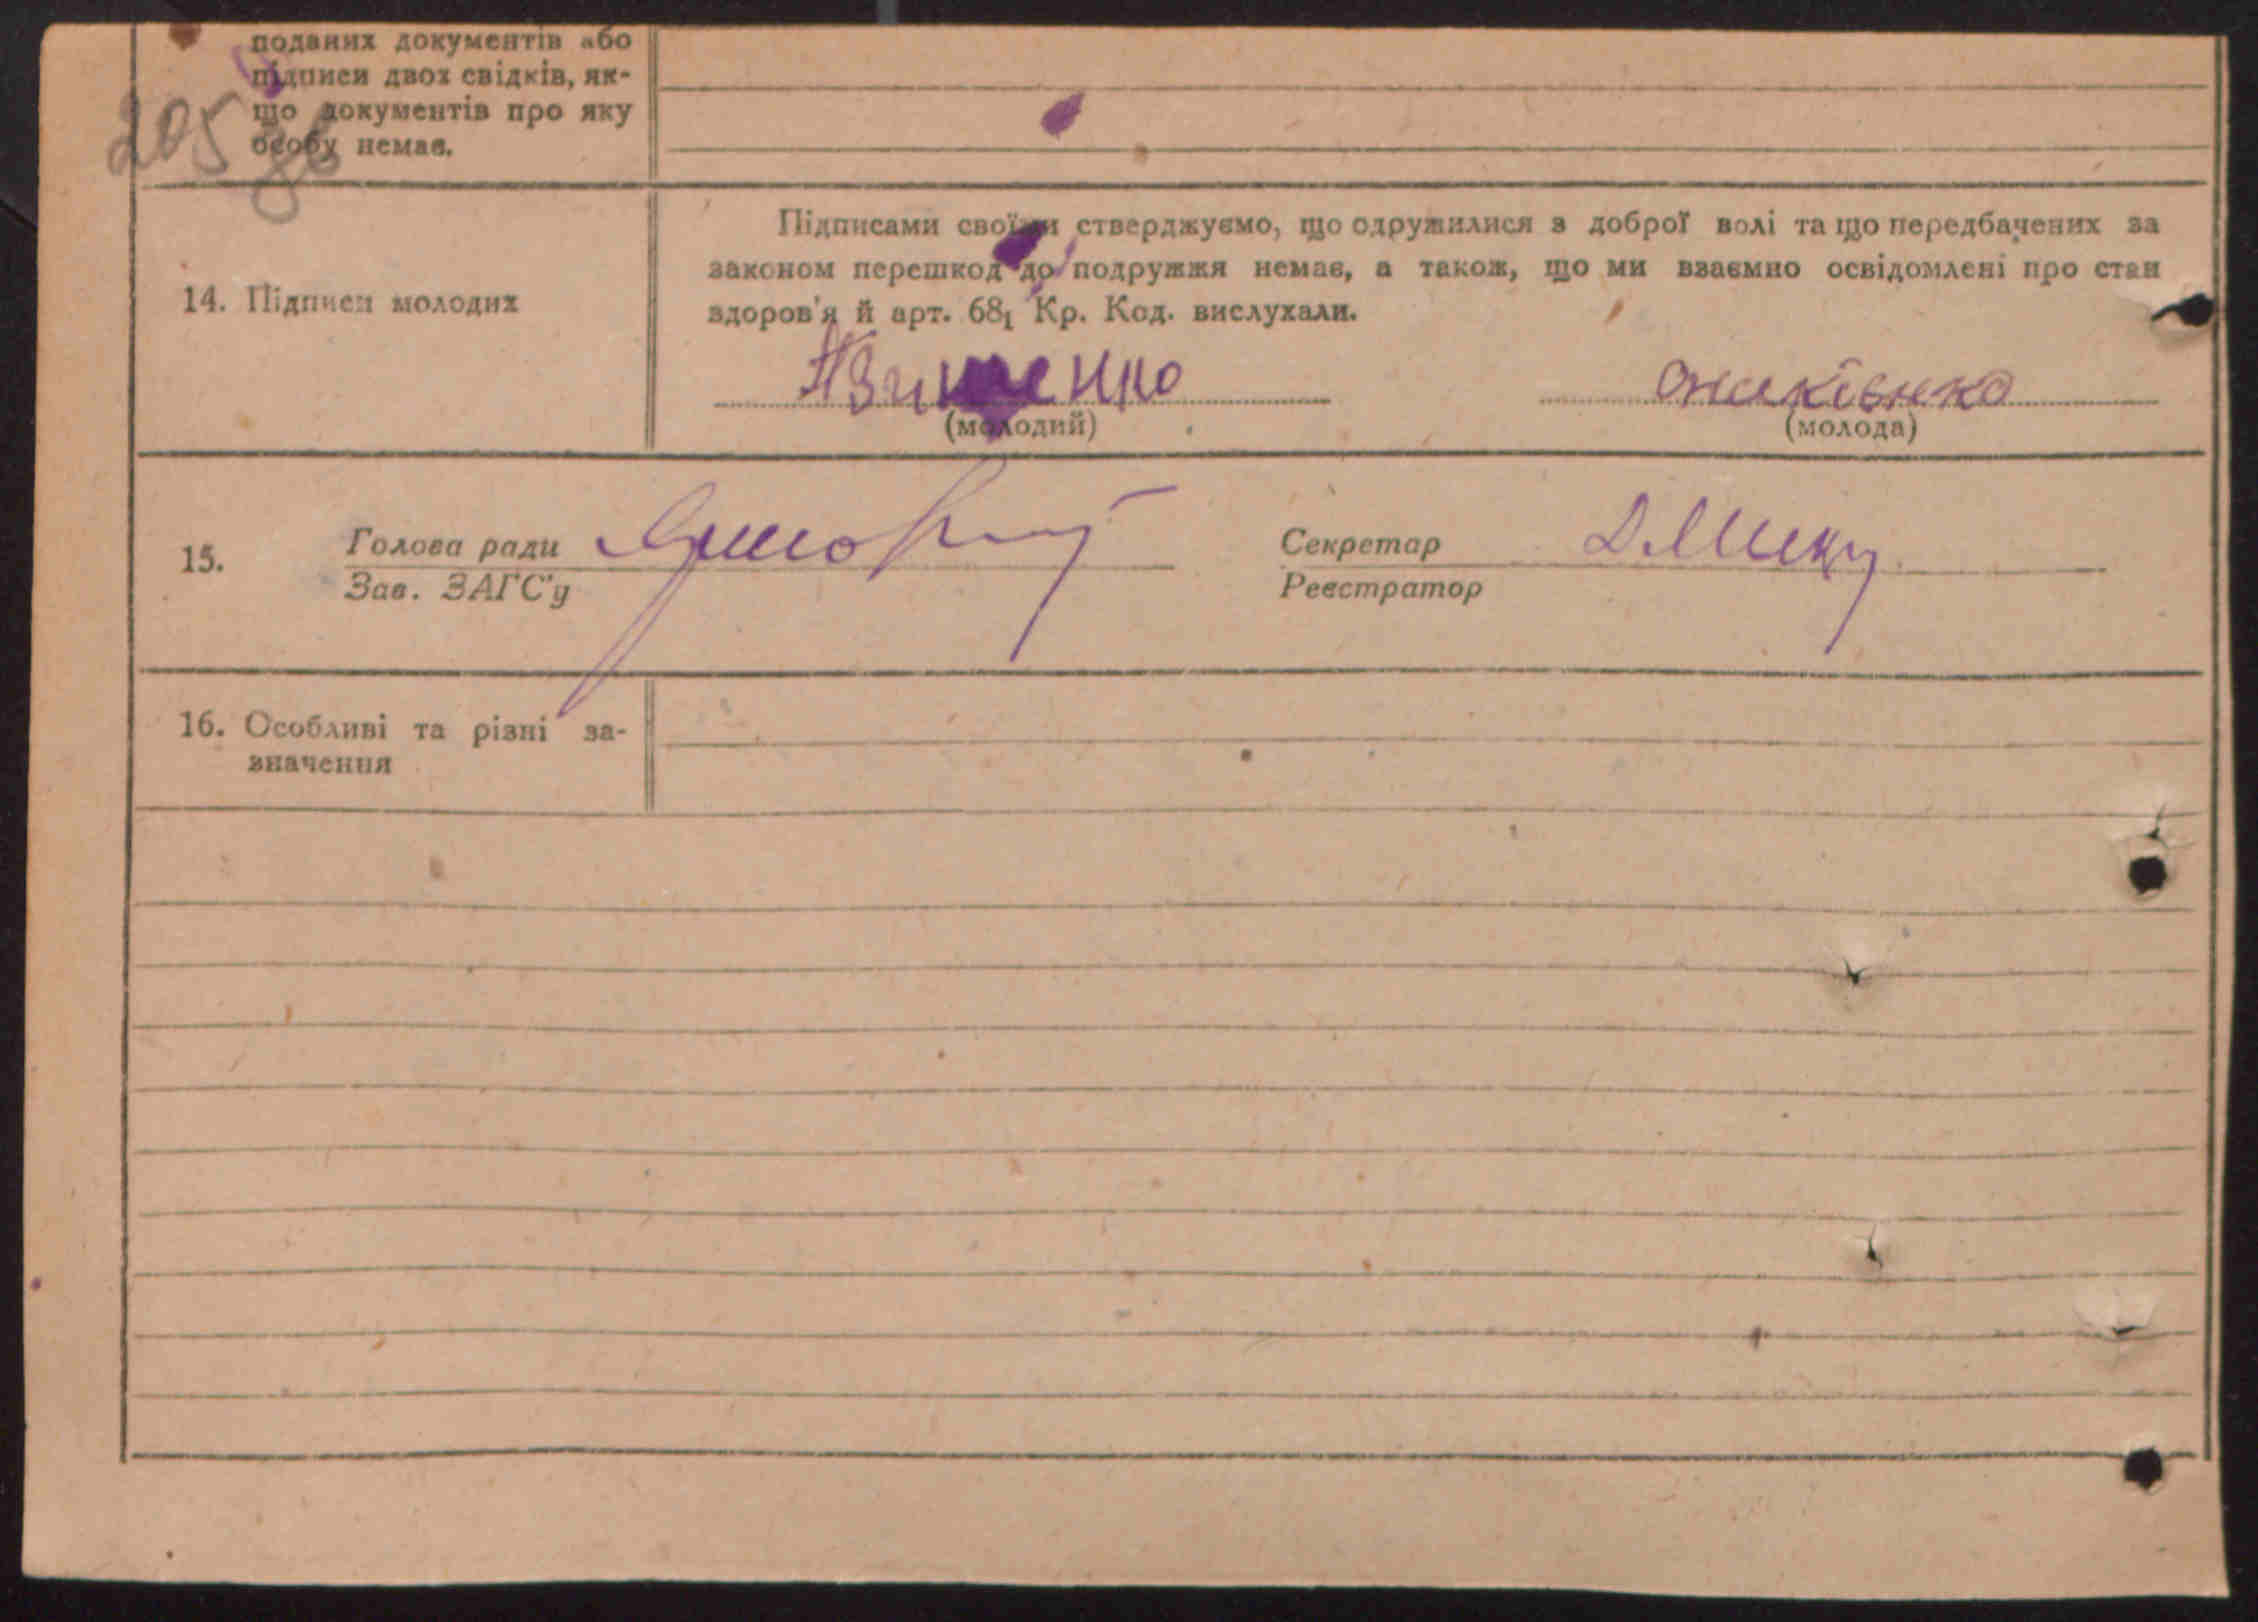 поданих документів або
підписи двох свідків, як-
що документів про яку
особу немає.
205 зв
Підписами своїми стверджуємо, що одружилися з доброї волі та що передбачених за
законом перешкод до подружжя немає, а також, що ми взаємно освідомлені про стан
здоров'я й арт. 68₁ Кр. Код. вислухали.
14. Підписи молодих
(молодий)
(молода)
15.
Голова ради
Зав. ЗАГС'у
Секретар
Реєстратор
16. Особливі та різні за-
значення